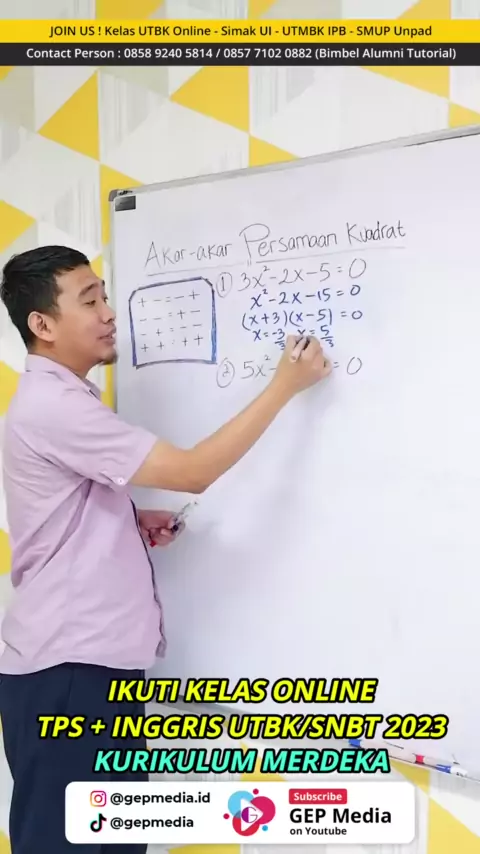 JOIN US ! Kelas UTBK Online - Simak UI - UTMBK IPB - SMUP Unpad
Contact Person : 0858 9240 5814 / 0857 7102 0882 (Bimbel Alumni Tutorial)
Akar-akar Persamaan Kuadrat
① 3x² - 2x - 5 = 0
x² - 2x - 15 = 0
(x + 3)(x - 5) = 0
x = -3/3 x = 5/3
+ - = - +
- - = + -
- + = + -
+ + = - -
② 5x² = 0
IKUTI KELAS ONLINE
TPS + INGGRIS UTBK/SNBT 2023
KURIKULUM MERDEKA
@gepmedia.id
@gepmedia
Subscribe
GEP Media
on Youtube